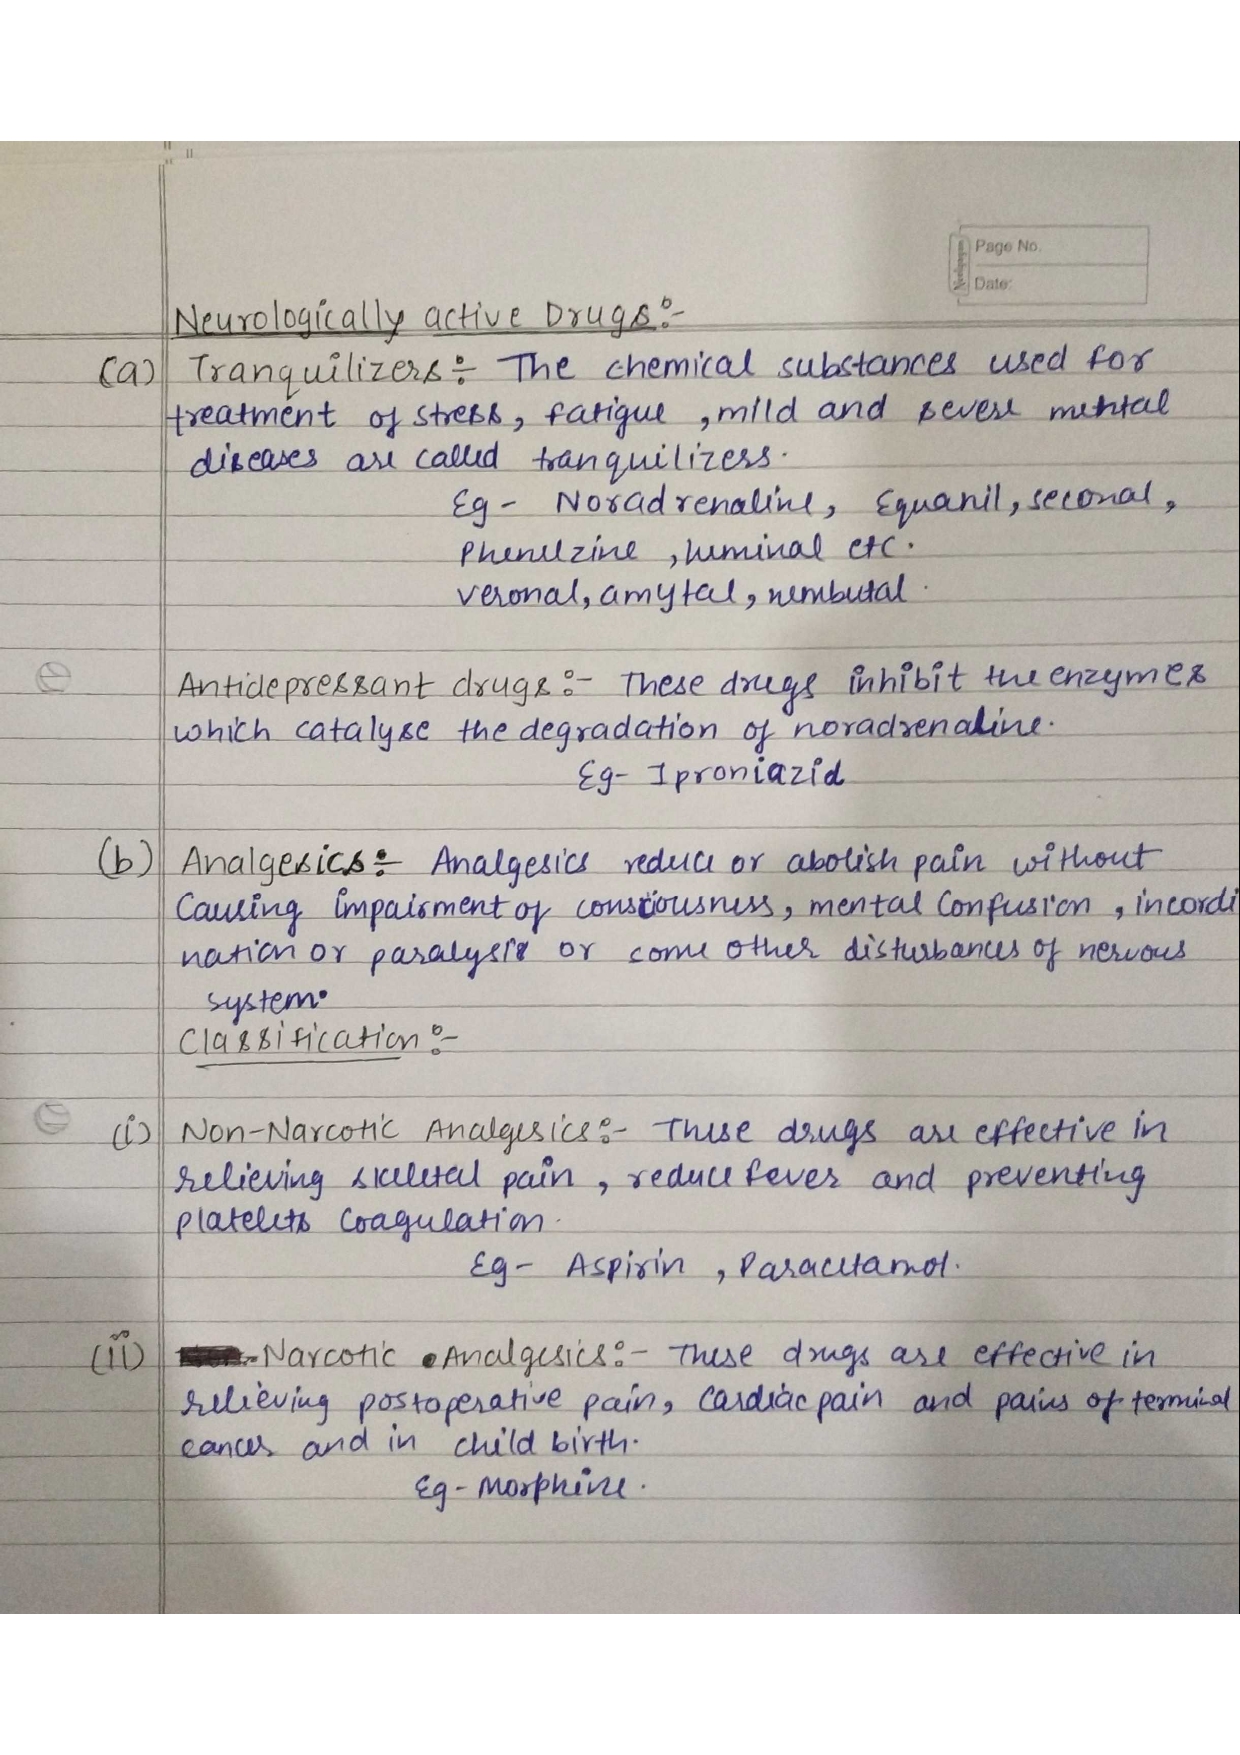 Page No.
Date:
Neurologically active Drugs:-
(a) Tranquilizers:- The chemical substances used for
treatment of stress, fatigue, mild and severe mental
diseases are called tranquilizers.
Eg- Noradrenaline, Equanil, seconal,
Phenelzine, luminal etc.
veronal, amytal, nembutal.
Antidepressant drugs:- These drugs inhibit the enzymes
which catalyse the degradation of noradrenaline.
Eg- Iproniazid
(b) Analgesics:- Analgesics reduce or abolish pain without
Causing impairment of consciousness, mental Confusion, incordi
nation or paralysis or some other disturbances of nervous
system.
Classification:-
(i) Non-Narcotic Analgesics:- These drugs are effective in
relieving skeletal pain, reduce fever and preventing
platelets Coagulation.
Eg- Aspirin, Paracetamol.
(ii) Narcotic Analgesics:- These drugs are effective in
relieving postoperative pain, Cardiac pain and pains of terminal
cancer and in child birth.
Eg- Morphine.